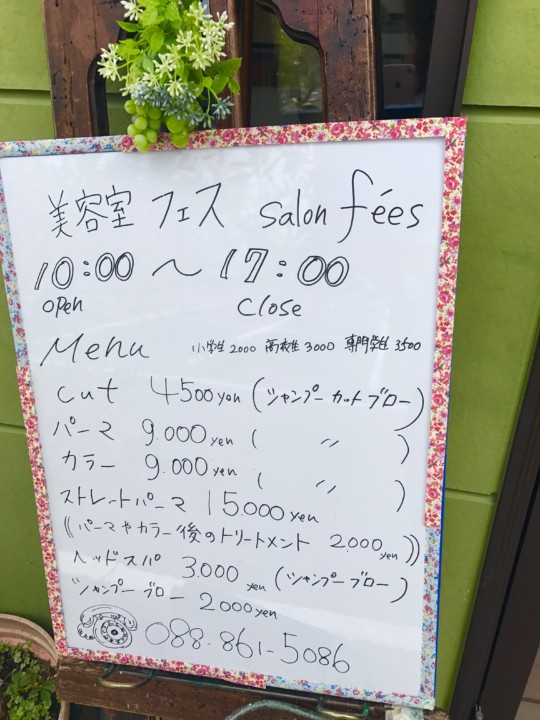 美容室 フェス salon fées
10:00 ～ 17:00
open close
Menu 小学生 2000 高校生 3000 専門学生 3500
cut 4500yen (シャンプー カット ブロー)
パーマ 9.000yen ( 〃 )
カラー 9.000yen ( 〃 )
ストレートパーマ 15.000yen
((パーマやカラー後のトリートメント 2.000yen))
ヘッドスパ 3.000yen (シャンプー ブロー)
シャンプー ブロー 2000yen
088-861-5086